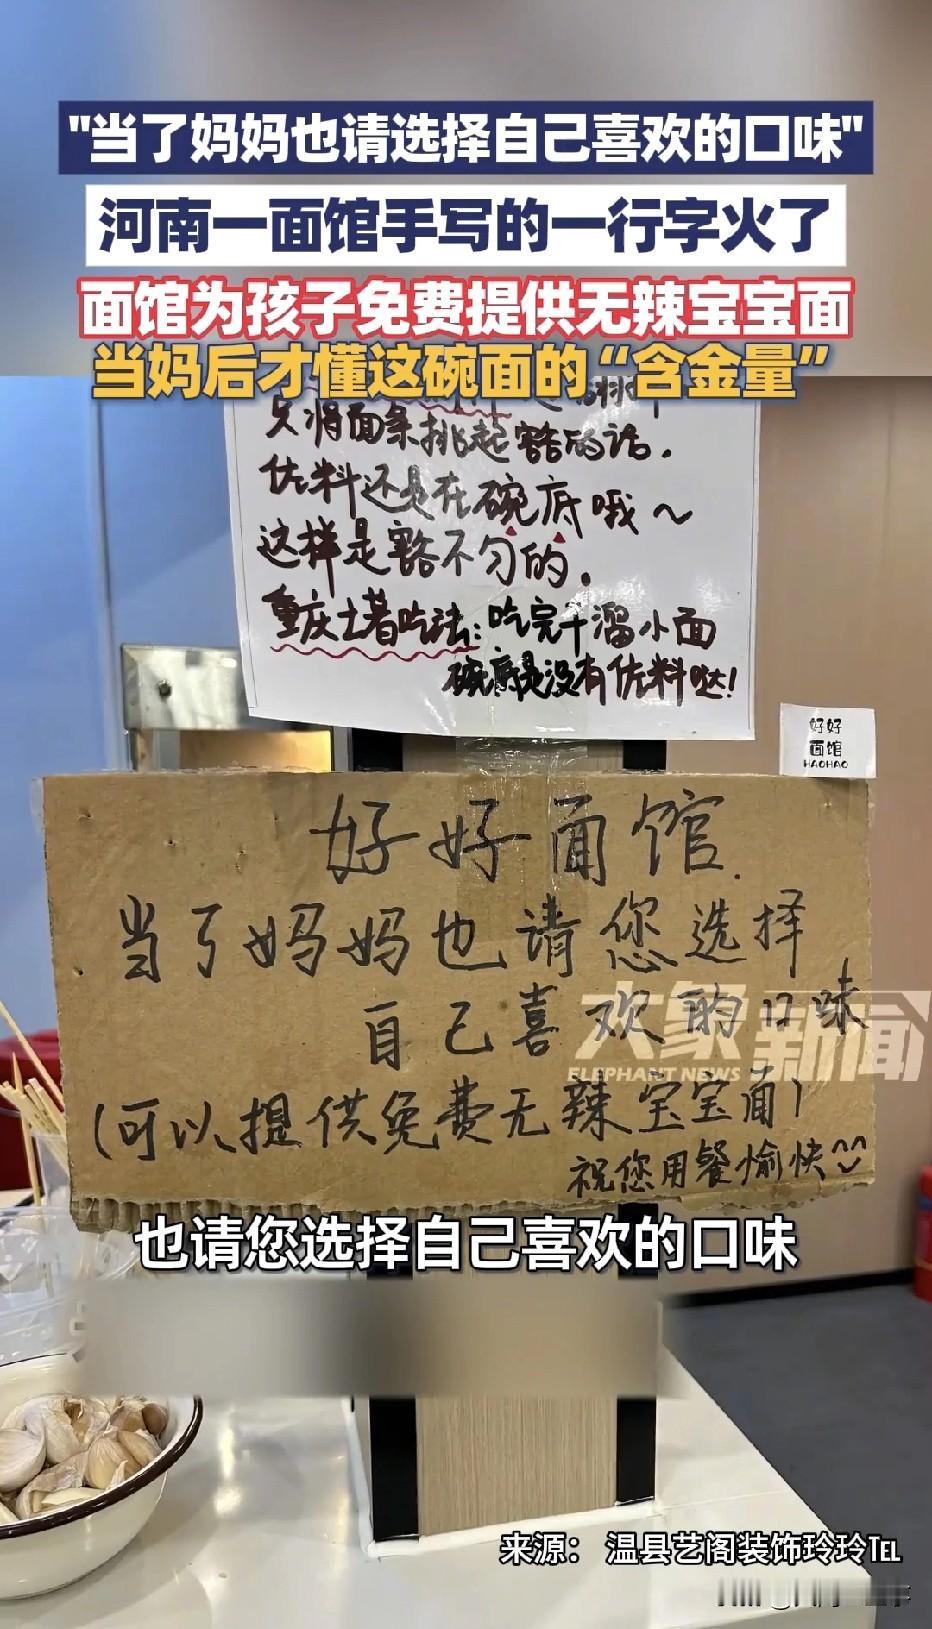 "当了妈妈也请选择自己喜欢的口味"
河南一面馆手写的一行字火了
面馆为孩子免费提供无辣宝宝面
当妈后才懂这碗面的“含金量”
只将面条挑起豁的话.
佐料还是在碗底哦~
这样是豁不匀的.
重庆土著吃法:吃完干溜小面
碗底是没有佐料哒!
好好
面馆
HAOHAO
好好面馆.
当了妈妈也请您选择
自己喜欢的口味
大象新闻
ELEPHANT NEWS
(可以提供免费无辣宝宝面)
祝您用餐愉快^^
也请您选择自己喜欢的口味
来源： 温县艺阁装饰玲玲TEL